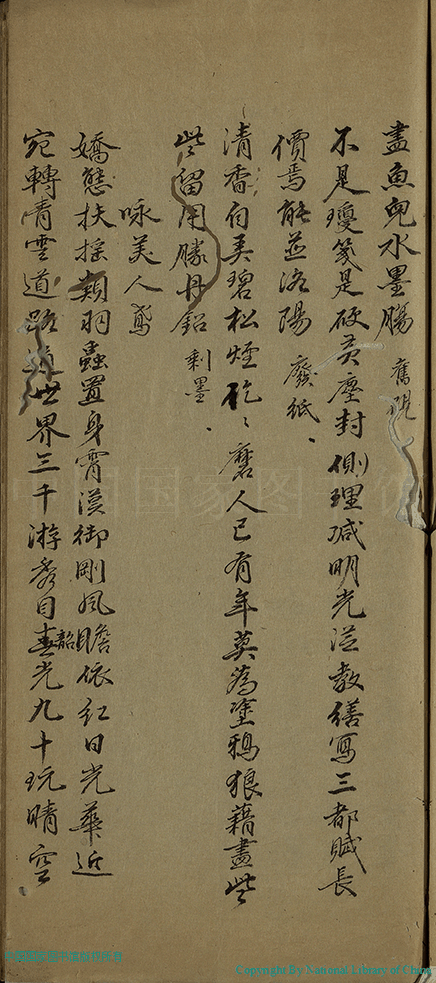 盡魚兒水墨腸 舊硯
不是瓊箋是硬黃塵封側理瑊明光從教繕寫三都賦長
價焉能並洛陽 廢紙、
清香自美碧松煙砣、磨人已有年莫為塗鴉狼藉盡些
些留用勝丹鉛 剩墨、
咏美人鳶
嬌態扶搖類羽蟲置身霄漢御剛風瞻依紅日光華近
宛轉青雲道路 世界三千游秀目韶光九十玩晴空
中国国家图书馆
Copyright By National Library of China